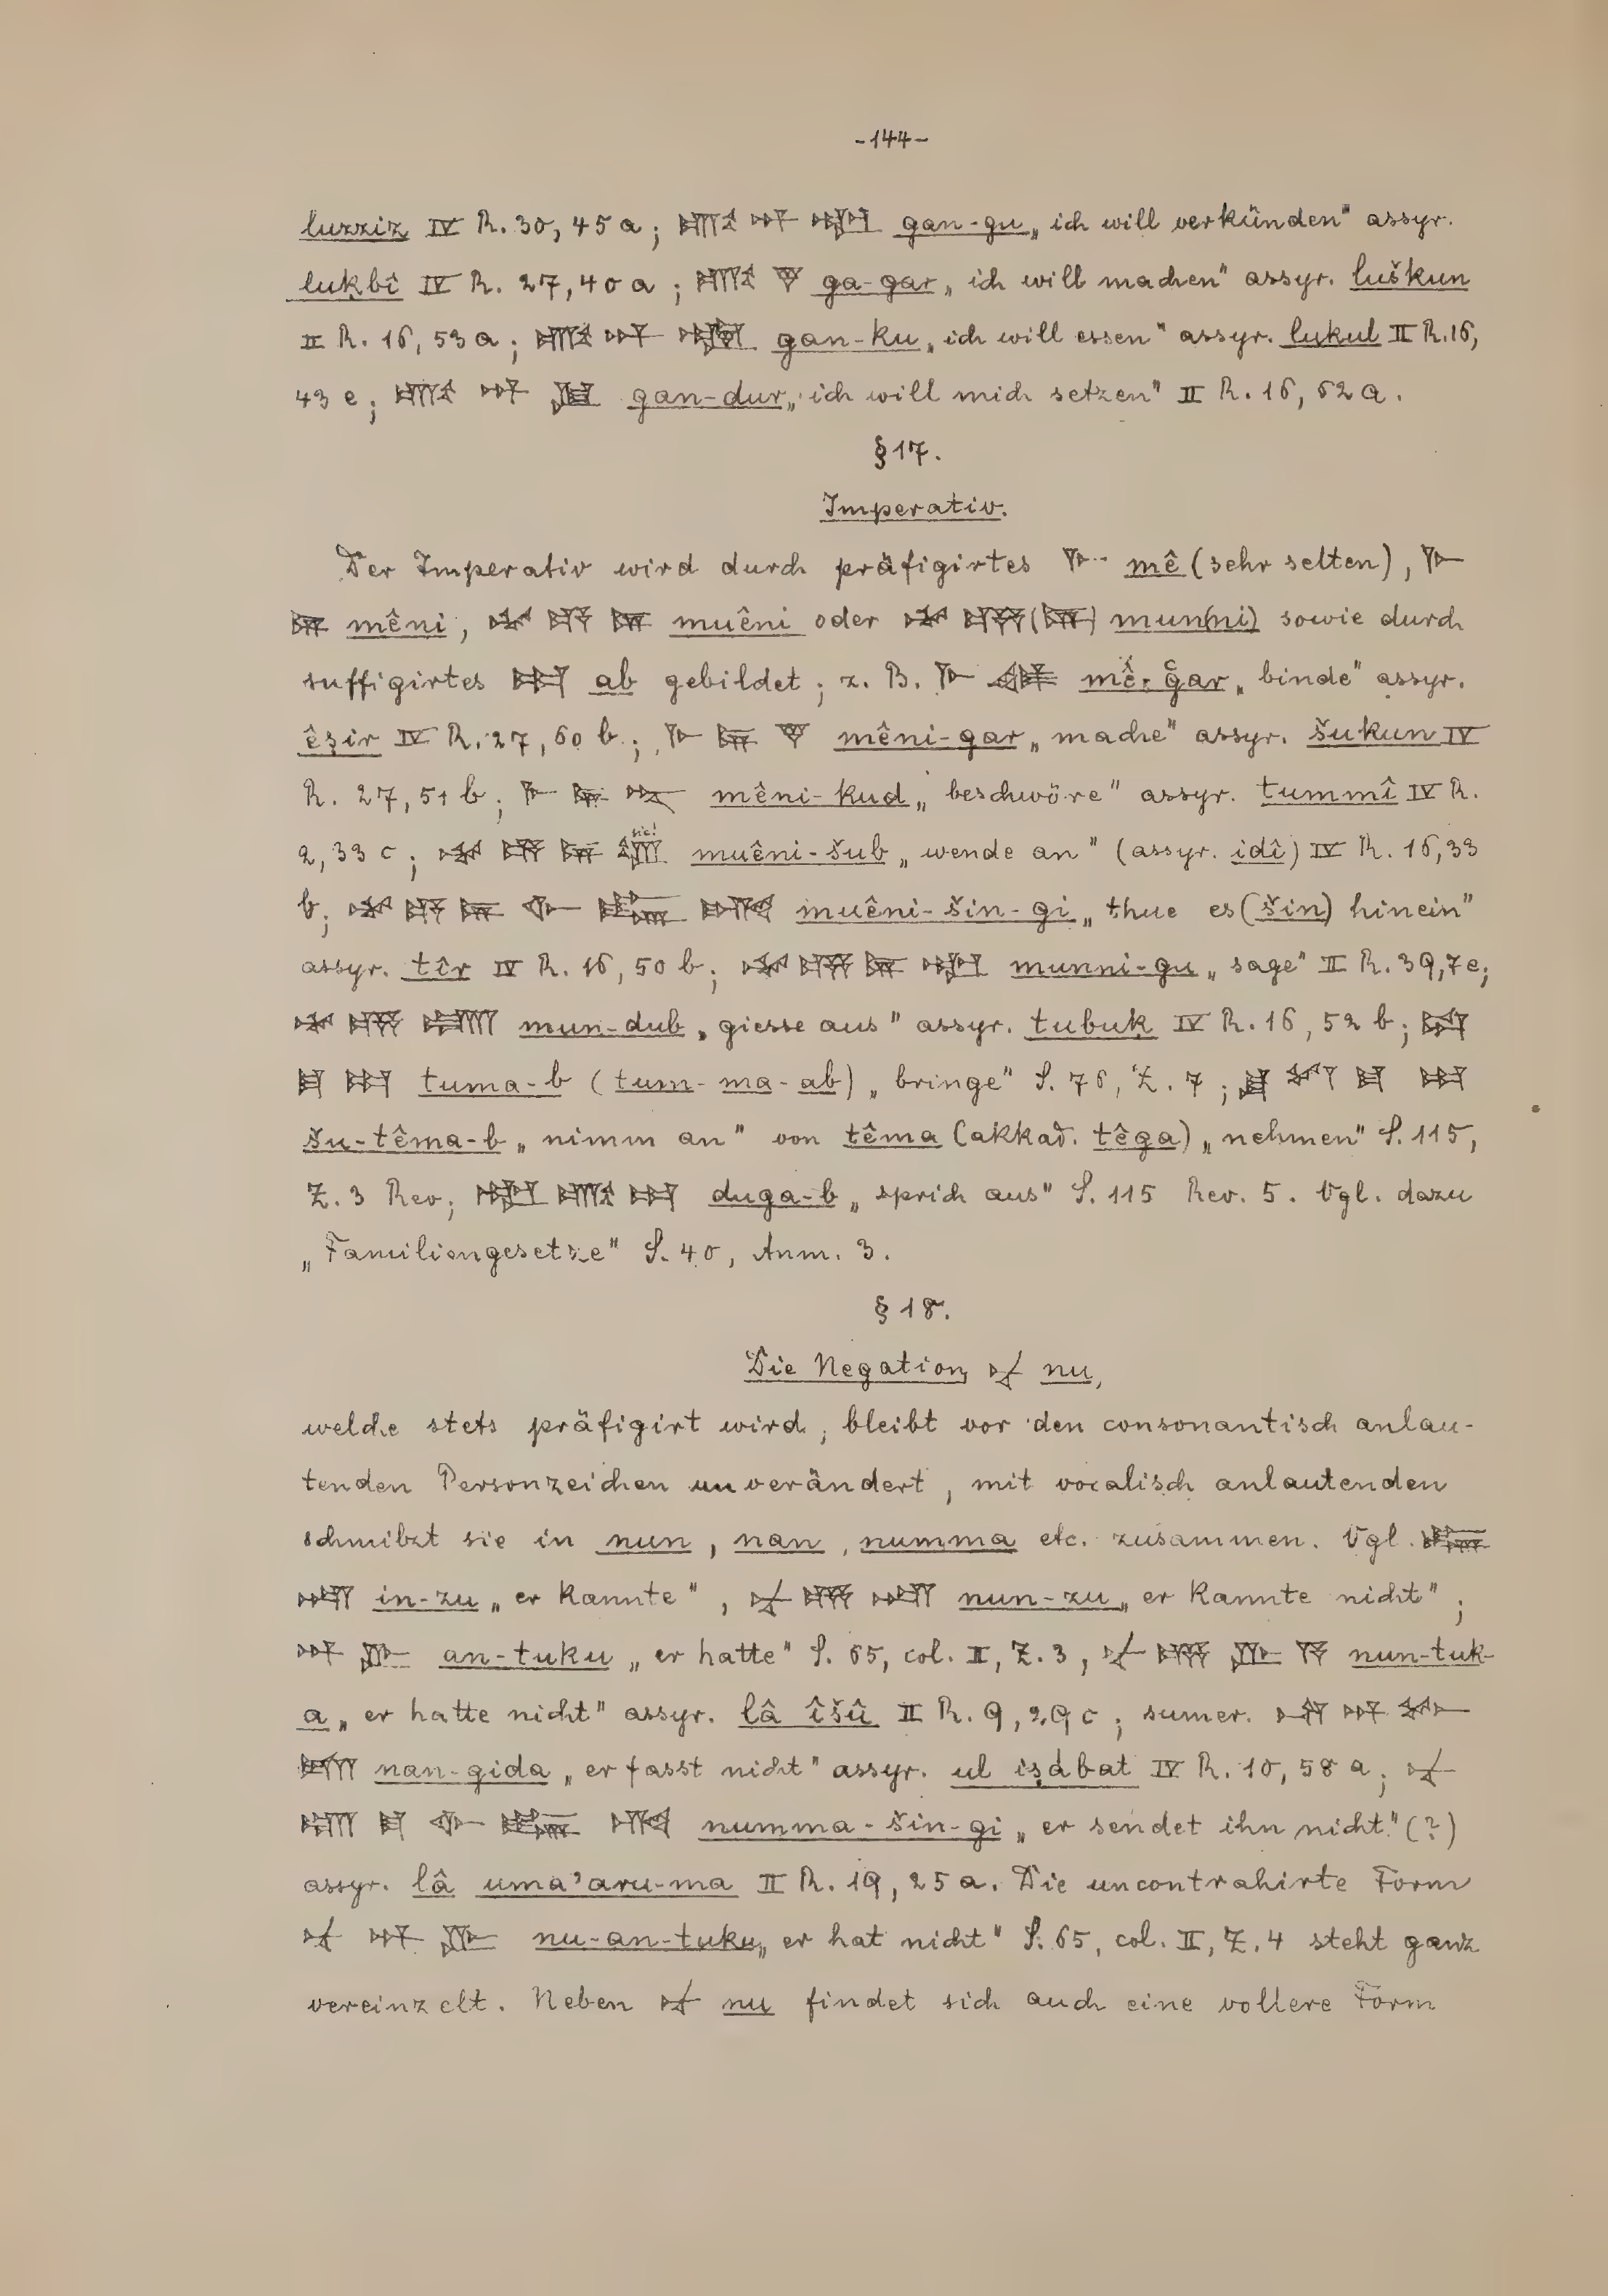 -144-
luzziz IV R. 30, 45 a; 𒂵 𒀭 𒅗 gan-gu „ich will verkünden" assyr.
lukbî IV R. 27, 40 a; 𒂵 𒃻 ga-gar „ich will machen" assyr. luškun
II R. 16, 53 a; 𒂵 𒀭 𒅥 gan-ku „ich will essen" assyr. lukul II R. 16,
43 e; 𒂵 𒀭 𒂉 gan-dur „ich will mich setzen" II R. 16, 62 a.
§ 17.
Imperativ.
Der Imperativ wird durch präfigirtes 𒈨 mê (sehr selten), 𒈨
𒉌 mêni, 𒄷 𒂊 𒉌 muêni oder 𒄷 𒌦 (𒉌) mun(ni) sowie durch
suffigirtes 𒀊 ab gebildet; z. B. 𒈨 mê-gar „binde" assyr.
êṣir IV R. 27, 60 b; 𒈨 𒉌 𒃻 mêni-gar „mache" assyr. šukun IV
R. 27, 51 b; 𒈨 𒉌 𒋻 mêni-kud „beschwöre" assyr. tummî IV R.
2, 33 c; 𒄷 𒂊 𒉌 sic! muêni-šub „wende an" (assyr. idî) IV R. 16, 33
b; 𒄷 𒂊 𒉌 𒅆 𒅔 𒄀 muêni-šin-gi „thue es (šin) hinein"
assyr. tîr IV R. 16, 50 b; 𒄷 𒌦 𒉌 𒅗 munni-gu „sage" II R. 39, 7 e;
𒄷 𒌦 𒁾 mun-dub „giesse aus" assyr. tubuk IV R. 16, 52 b; 𒌈
𒈠 𒀊 tuma-b (tum-ma-ab) „bringe" S. 76, Z. 7; 𒋗 𒋼 𒈠 𒀊
šu-têma-b „nimm an" von têma (akkad. têga) „nehmen" S. 115,
Z. 3 Rev; 𒅗 𒂵 𒀊 duga-b „sprich aus" S. 115 Rev. 5. Vgl. dazu
„Familiengesetze" S. 40, Anm. 3.
§ 18.
Die Negation 𒉡 nu,
welche stets präfigirt wird, bleibt vor den consonantisch anlau-
tenden Personzeichen unverändert, mit vocalisch anlautenden
schmilzt sie in nun, nan, numma etc. zusammen. Vgl. 𒅔
𒍪 in-zu „er kannte", 𒉡 𒌦 𒍪 nun-zu „er kannte nicht";
𒀭 𒌇 an-tuku „er hatte" S. 65, col. II, Z. 3, 𒉡 𒌦 𒌇 𒀀 nun-tuk-
a „er hatte nicht" assyr. lâ îšû II R. 9, 29 c; sumer. 𒈾 𒀭 𒁍
𒁕 nan-gida „er fasst nicht" assyr. ul iṣabat IV R. 10, 58 a; 𒉡
𒌝 𒈠 𒅆 𒅔 𒄀 numma-šin-gi „er sendet ihn nicht" (?)
assyr. lâ uma'aru-ma II R. 19, 25 a. Die uncontrahirte Form
𒉡 𒀭 𒌇 nu-an-tuku „er hat nicht" S. 65, col. II, Z. 4 steht ganz
vereinzelt. Neben 𒉡 nu findet sich auch eine vollere Form